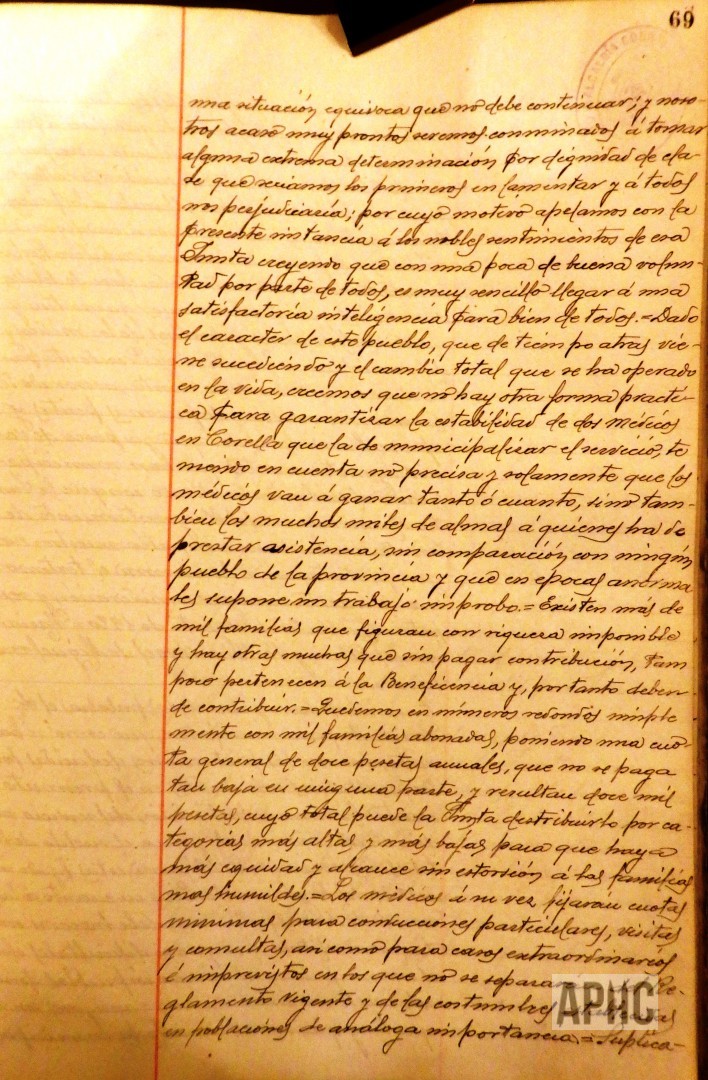 69
una situación equivoca que no debe continuar; y noso-
tros acaso muy prontos seremos conminados á tomar
alguna extrema determinación por dignidad de cla-
se que seriamos los primeros en lamentar y á todos
nos perjudicaría; por cuyo motivo apelamos con la
presente instancia á los nobles sentimientos de esa
Junta creyendo que con una poca de buena volun-
tad por parte de todos, es muy sencillo llegar á una
satisfactoria inteligencia para bien de todos.=Dado
el caracter de este pueblo, que de tiempo atras vie-
ne sucediendo y el cambio total que se ha operado
en la vida, creemos que no hay otra forma practi-
ca para garantizar la estabilidad de dos médicos
en Corella que la de municipalizar el servicio, te
niendo en cuenta no precisa y solamente que los
médicos van á ganar tanto ó cuanto, sino tam-
bien los muchos miles de almas á quienes ha de
prestar asistencia, sin comparación con ningún
pueblo de la provincia y que en epocas anorma
les supone un trabajo improbo.=Existen más de
mil familias que figuran con riqueza imponible
y hay otras muchas que sin pagar contribución, tam
poco pertenecen á la Beneficencia y, por tanto deben
de contribuir.=Quedemos en números redondos simple
mente con mil familias abonadas, poniendo una cuo-
ta general de doce pesetas anuales, que no se paga
tan baja en ninguna parte, y resultan doce mil
pesetas, cuyo total puede la Junta distribuirlo por ca-
tegorias más altas y más bajas para que haya
más equidad y alcance sin estorsión á las familias
mas humildes.=Los médicos á su vez fijaran cuotas
minimas para conducciones particulares, visitas
y consultas, asi como para casos extraordinarios
é imprevistos en los que no se separa Re-
glamento vigente y de las costumbres
en poblaciones de análoga importancia.=Suplica-
APHC